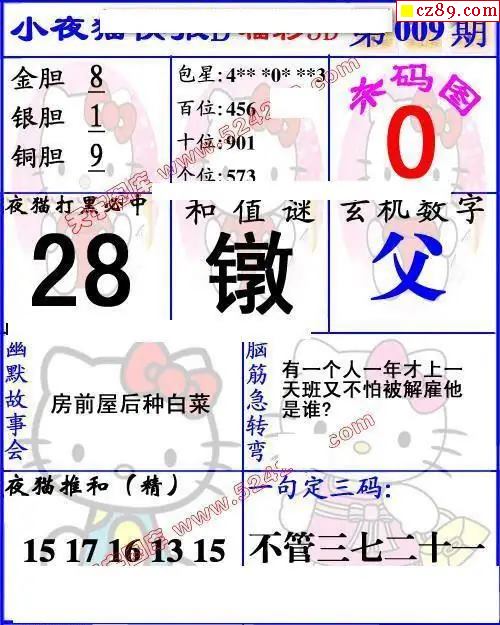 cz89.com
小夜猫快报D 福彩3D 第009期
金胆 8
银胆 1
铜胆 9
包星:4** *0* **3
百位:456
十位:901
个位:573
来码图
0
夜猫打黑必中
28
和值谜
镦
玄机数字
父
幽默故事会
房前屋后种白菜
脑筋急转弯
有一个人一年才上一
天班又不怕被解雇他
是谁?
夜猫推和（精）
15 17 16 13 15
一句定三码:
不管三七二十一